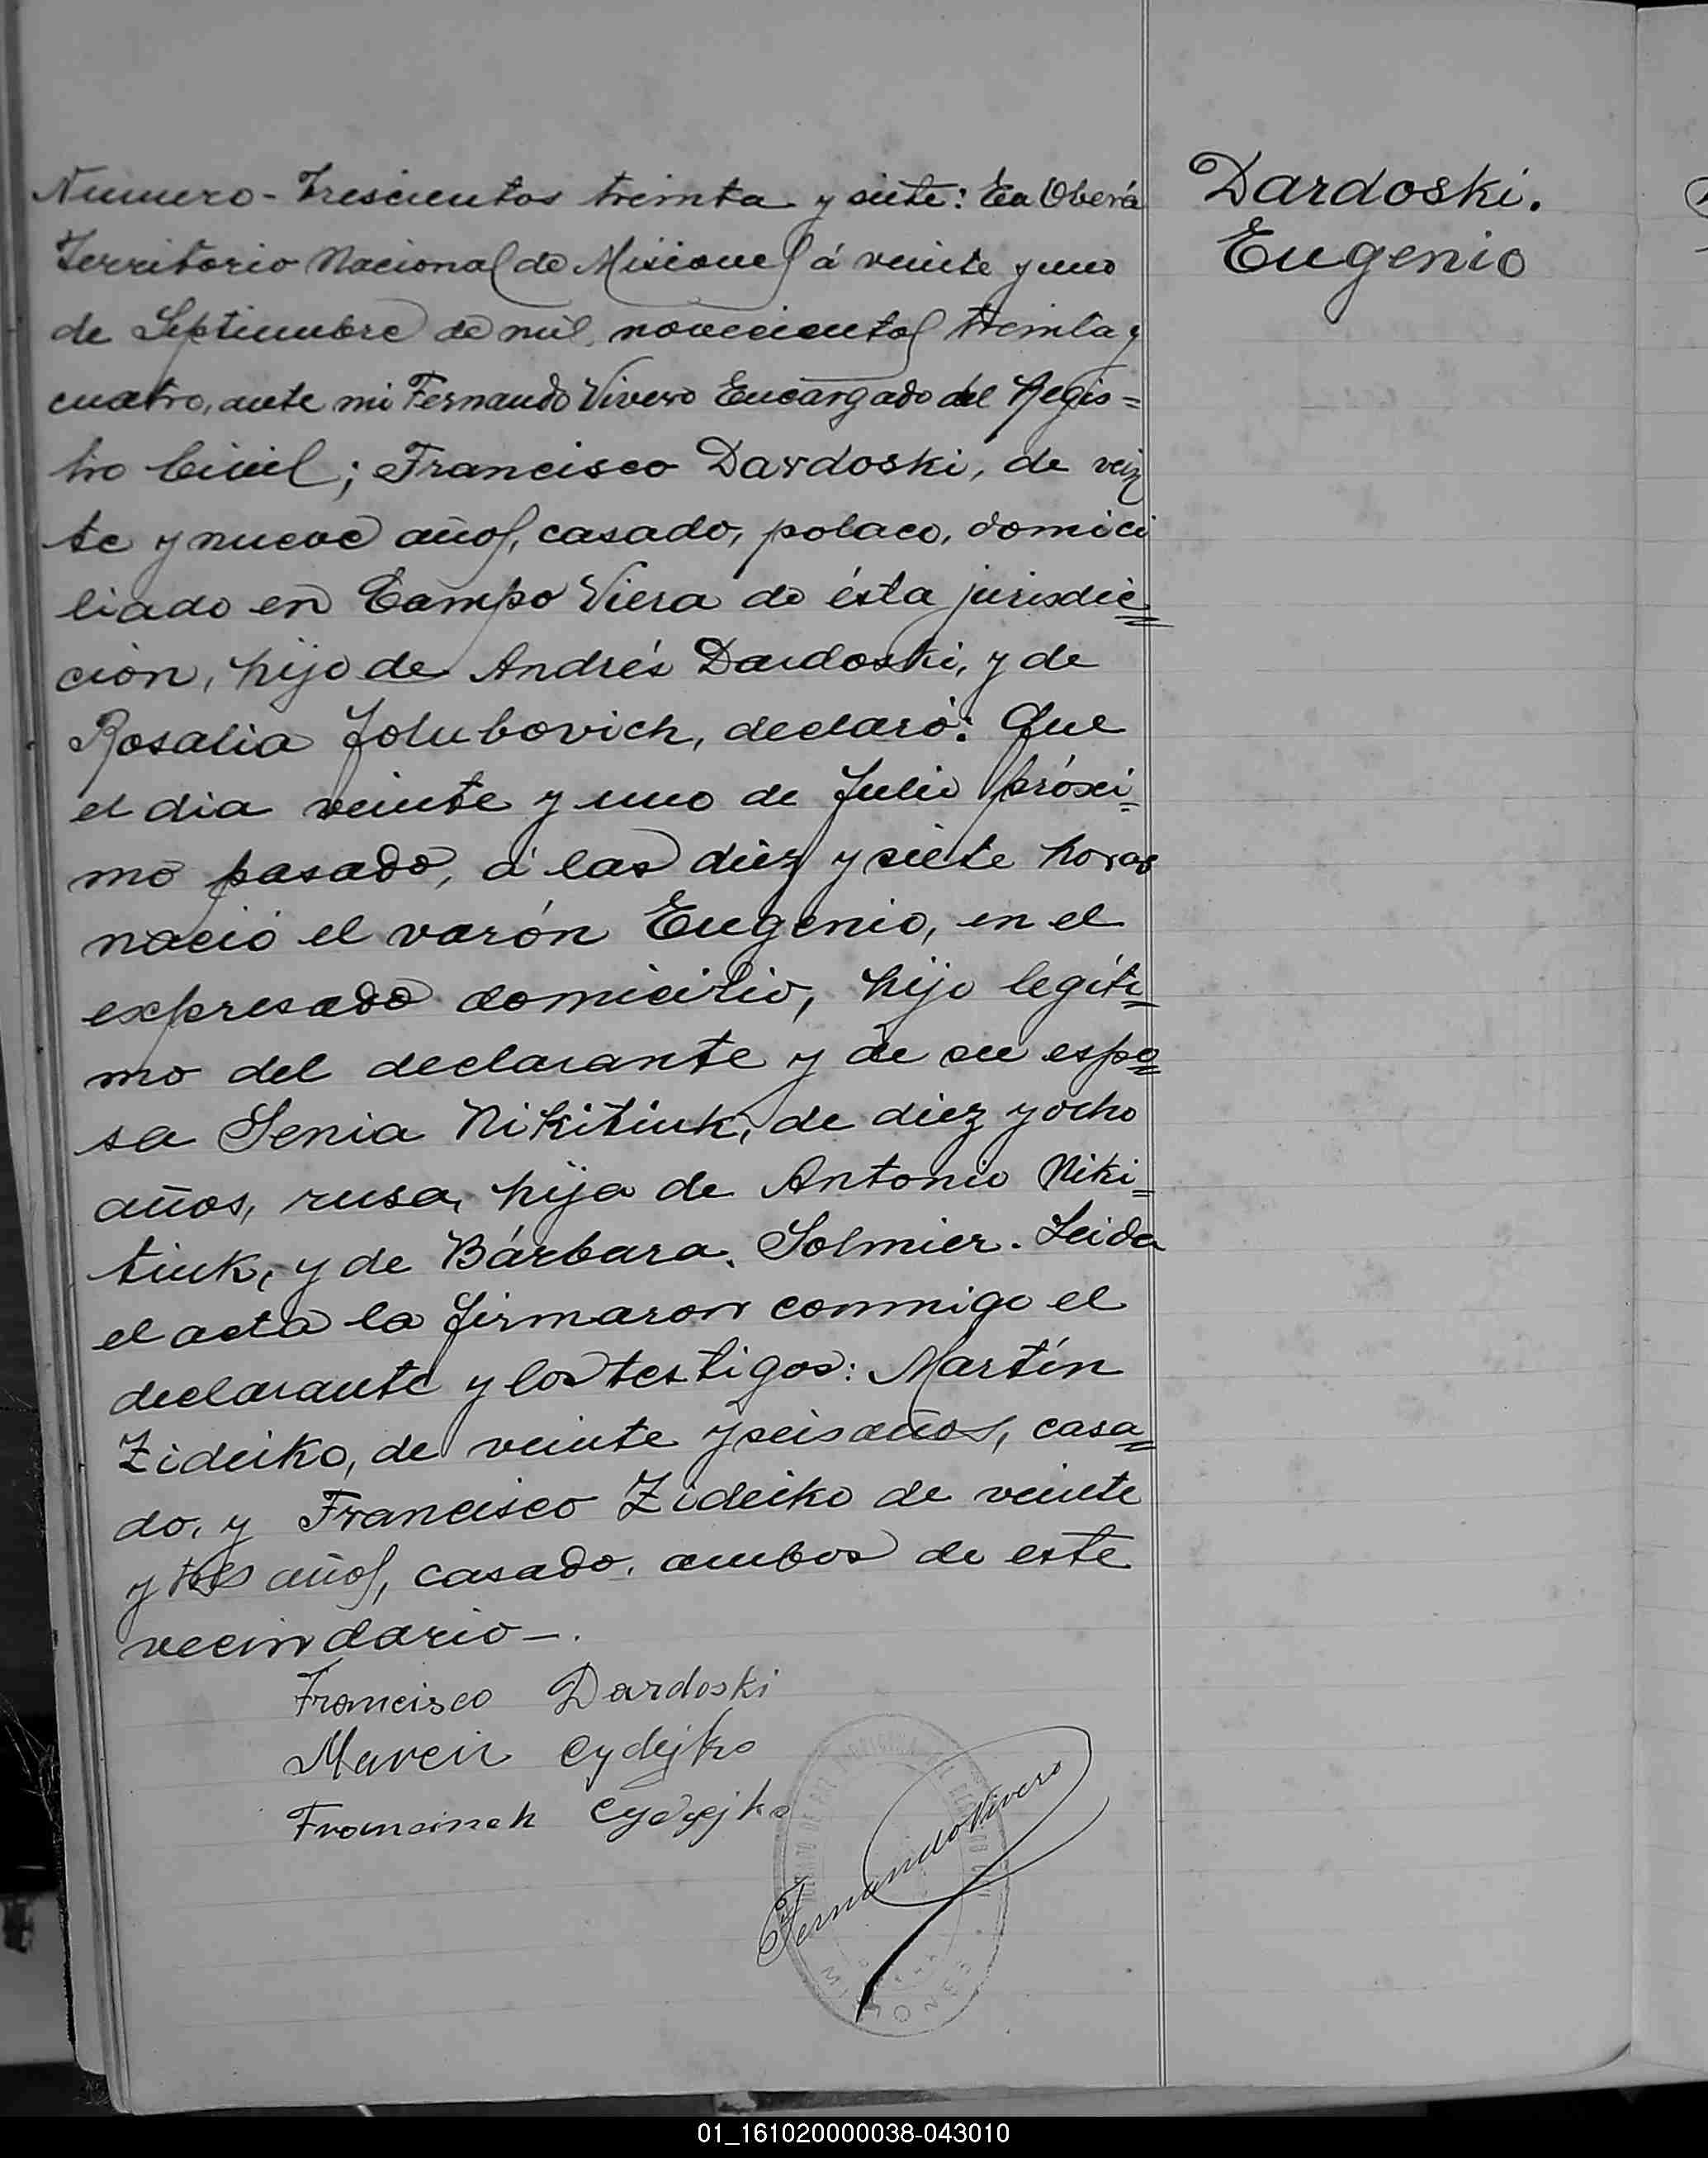 Número - Trescientos treinta y siete: En Oberá
Territorio Nacional de Misiones á veinte y uno
de Septiembre de mil novecientos treinta y
cuatro, ante mi Fernando Vivero Encargado del Regis=
tro Civil; Francisco Dardoski, de vein
te y nueve años, casado, polaco, domici
liado en Campo Viera de ésta jurisdic=
ción, hijo de Andrés Dardoski, y de
Rosalia Jolubovich, declaró: Que
el dia veinte y uno de Julio próxi=
mo pasado, á las diez y siete horas
nació el varón Eugenio, en el
expresado domicilio, hijo legíti=
mo del declarante y de su espo=
sa Senia Nikitiuk, de diez y ocho
años, rusa, hija de Antonio Niki=
tiuk, y de Bárbara Solmier. Leida
el acta la firmaron conmigo el
declarante y los testigos: Martín
Zideiko, de veinte y seis años, casa=
do, y Francisco Zideiko de veinte
y tres años, casado, ambos de este
vecindario -.
Francisco Dardoski
Marcin Cydejko
Francinek Cydejko
Fernando Vivero
MISIONES
Dardoski.
Eugenio
01_161020000038-043010